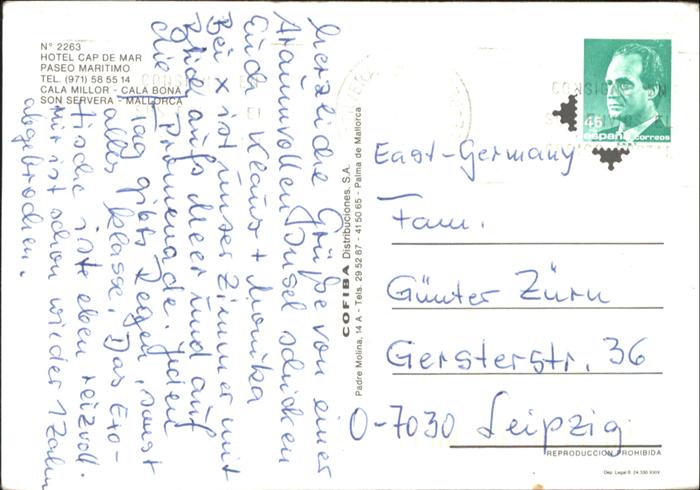 N° 2263
HOTEL CAP DE MAR
PASEO MARITIMO
TEL. (971) 58 55 14
CALA MILLOR - CALA BONA
SON SERVERA - MALLORCA
herzliche Grüße von einer
traumvollen Insel schicken
Euch Klaus + Monika
Bei x ist unser Zimmer mit
Blick aufs Meer und auf
die Promenade. Jeden
Tag gibts Regen, sonst
alles Klasse. Das Exo-
tische ist eben reizvoll.
Mir ist schon wieder 1 Zahn
abgebrochen.
COFIBA Distribuciones, S.A.
Padre Molina, 14 A - Tels. 29 52 87 - 41 50 65 - Palma de Mallorca
45
españa correos
East-Germany
Fam.
Günter Zürn
Gersterstr. 36
O-7030 Leipzig
REPRODUCCION PROHIBIDA